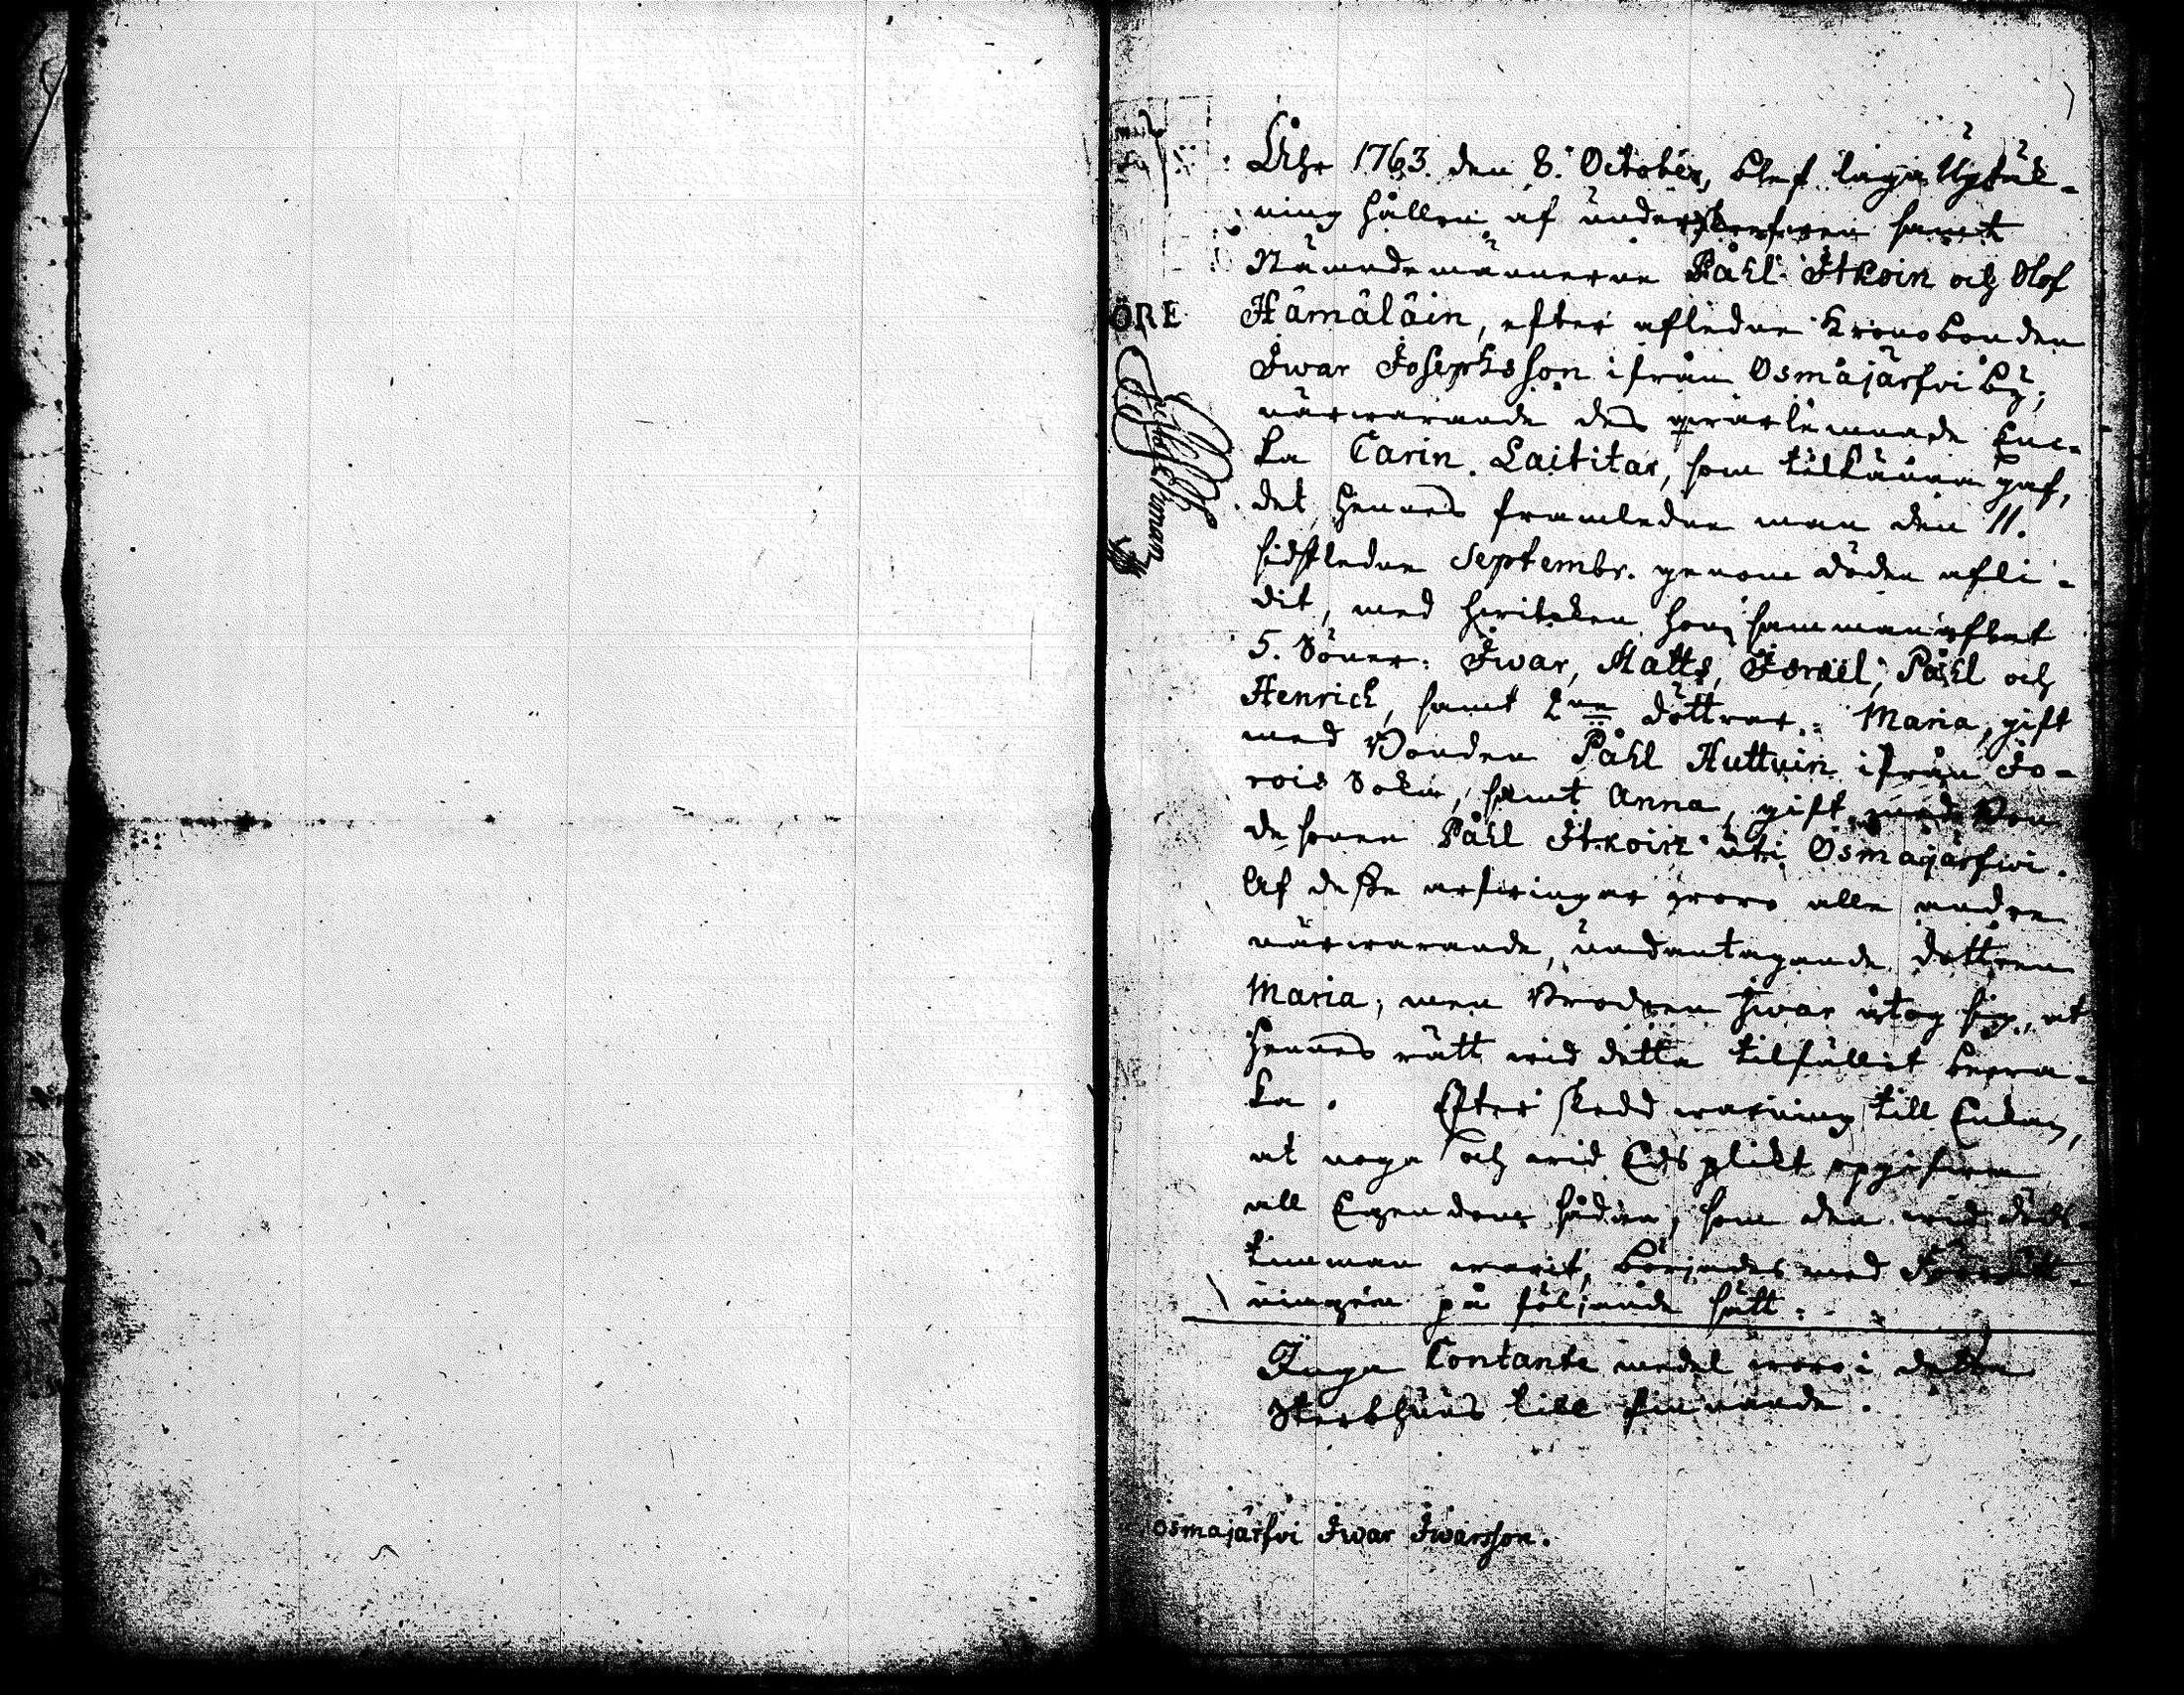 ÖRE
Åhr 1763. den 8. October, blef laga Upteck-
ning hållen af underskrefven samt
Nämndemännerne Påhl Itkoin och Olof
Hämäläin, efter afledne Kronobonden
Iwar Josephsson ifrån Osmajärfvi by,
närwarande des qwarlemnade Enc-
ka Carin Laititar, som tilkänna gaf,
det hennes framledne man den 11.
sidstledne Septembr. genom döden afli-
dit, med hwilcken hon sammanaflat
5. Söner: Iwar, Matts, Israel, Påhl och
Henrich, samt 2ne döttrar: Maria, gift
med Bonden Påhl Huttuin ifrån Jo-
rois Sokn, samt Anna, gift med Bon
desonen Påhl Itkoin uti Osmajärfwi.
Af desse arfwingar woro alle andre
närwarande, undantagande dottren
Maria, men Brodren Iwar åtog sig, at
hennes rätt wid detta tilfället bewa-
ka. Efter skedd warning till Enkan,
at noga och wid Eds plikt opgifwa
all Egendom sådan, som den wid döds-
timman warit, börjades med Förrätt-
ningen på följande sätt:
Inga Contante medel woro i detta
Sterbhuus till finnande.
Osmajärfvi Iwar Iwarsson.